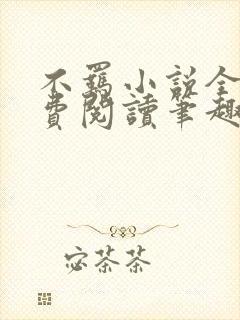 不羈小說全
費閱讀筆趣
宓茶茶